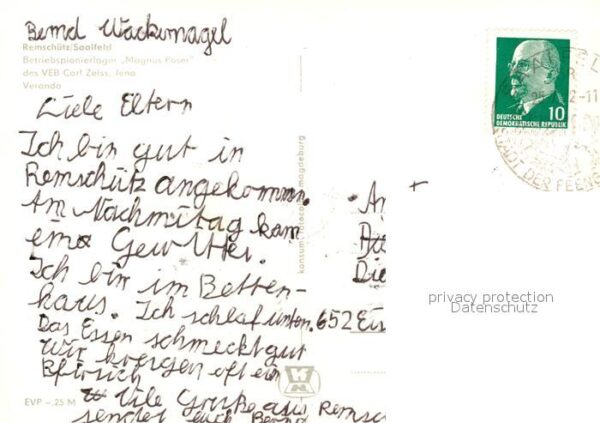 Bernd Wackernagel
Remschütz/Saalfeld
Betriebspionierlager „Magnus Poser"
des VEB Carl Zeiss, Jena
Veranda
Liele Eltern
Ich bin gut in
Remschütz angekommn.
Am Nachmitag kam
eina Gewitter.
Ich bin im Betten-
haus. Ich schlaf unten.
Das Essen schmeckt gut
Wir kregen oft ein
Pfirsich
Vile Grüße aus Remsch
sendet euch Bernd
EVP –.25 M
konsum-fotocolor magdeburg
10
DEUTSCHE
DEMOKRATISCHE REPUBLIK
STADT DER FEENG
An
Die
652 Eis
privacy protection
Datenschutz